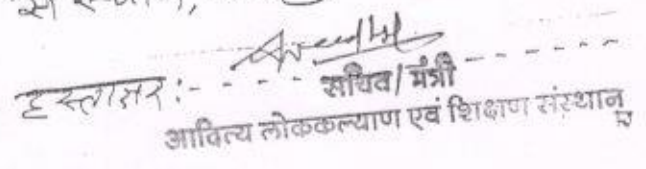 से सत्यापित,
हस्ताक्षर:- - - - - - - - - - -
सचिव/मंत्री
आदित्य लोककल्याण एवं शिक्षण संस्थान